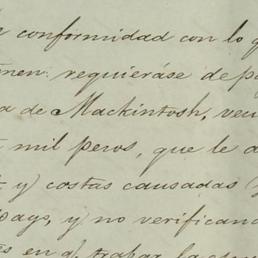 conformidad con lo q
requierase de pa
a de Mackintosh, vec
mil pesos, que le a
y costas causadas
Days, y no verifican
es en q. trabar la